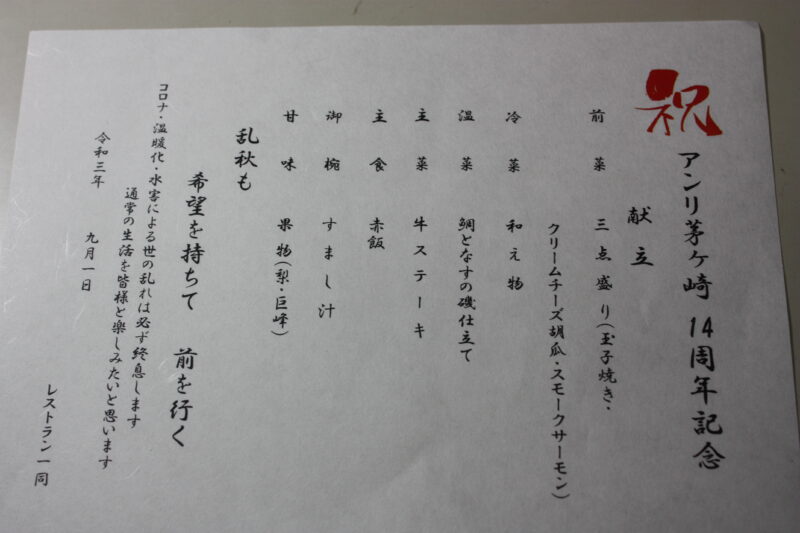 祝
アンリ茅ヶ崎 14周年記念
献立
前菜 三点盛り(玉子焼き・
クリームチーズ胡瓜・スモークサーモン)
冷菜 和え物
温菜 鯛となすの磯仕立て
主菜 牛ステーキ
主食 赤飯
御椀 すまし汁
甘味 果物(梨・巨峰)
乱秋も
希望を持ちて 前を行く
コロナ・温暖化・水害による世の乱れは必ず終息します
通常の生活を皆様と楽しみたいと思います
令和三年 九月一日
レストラン一同